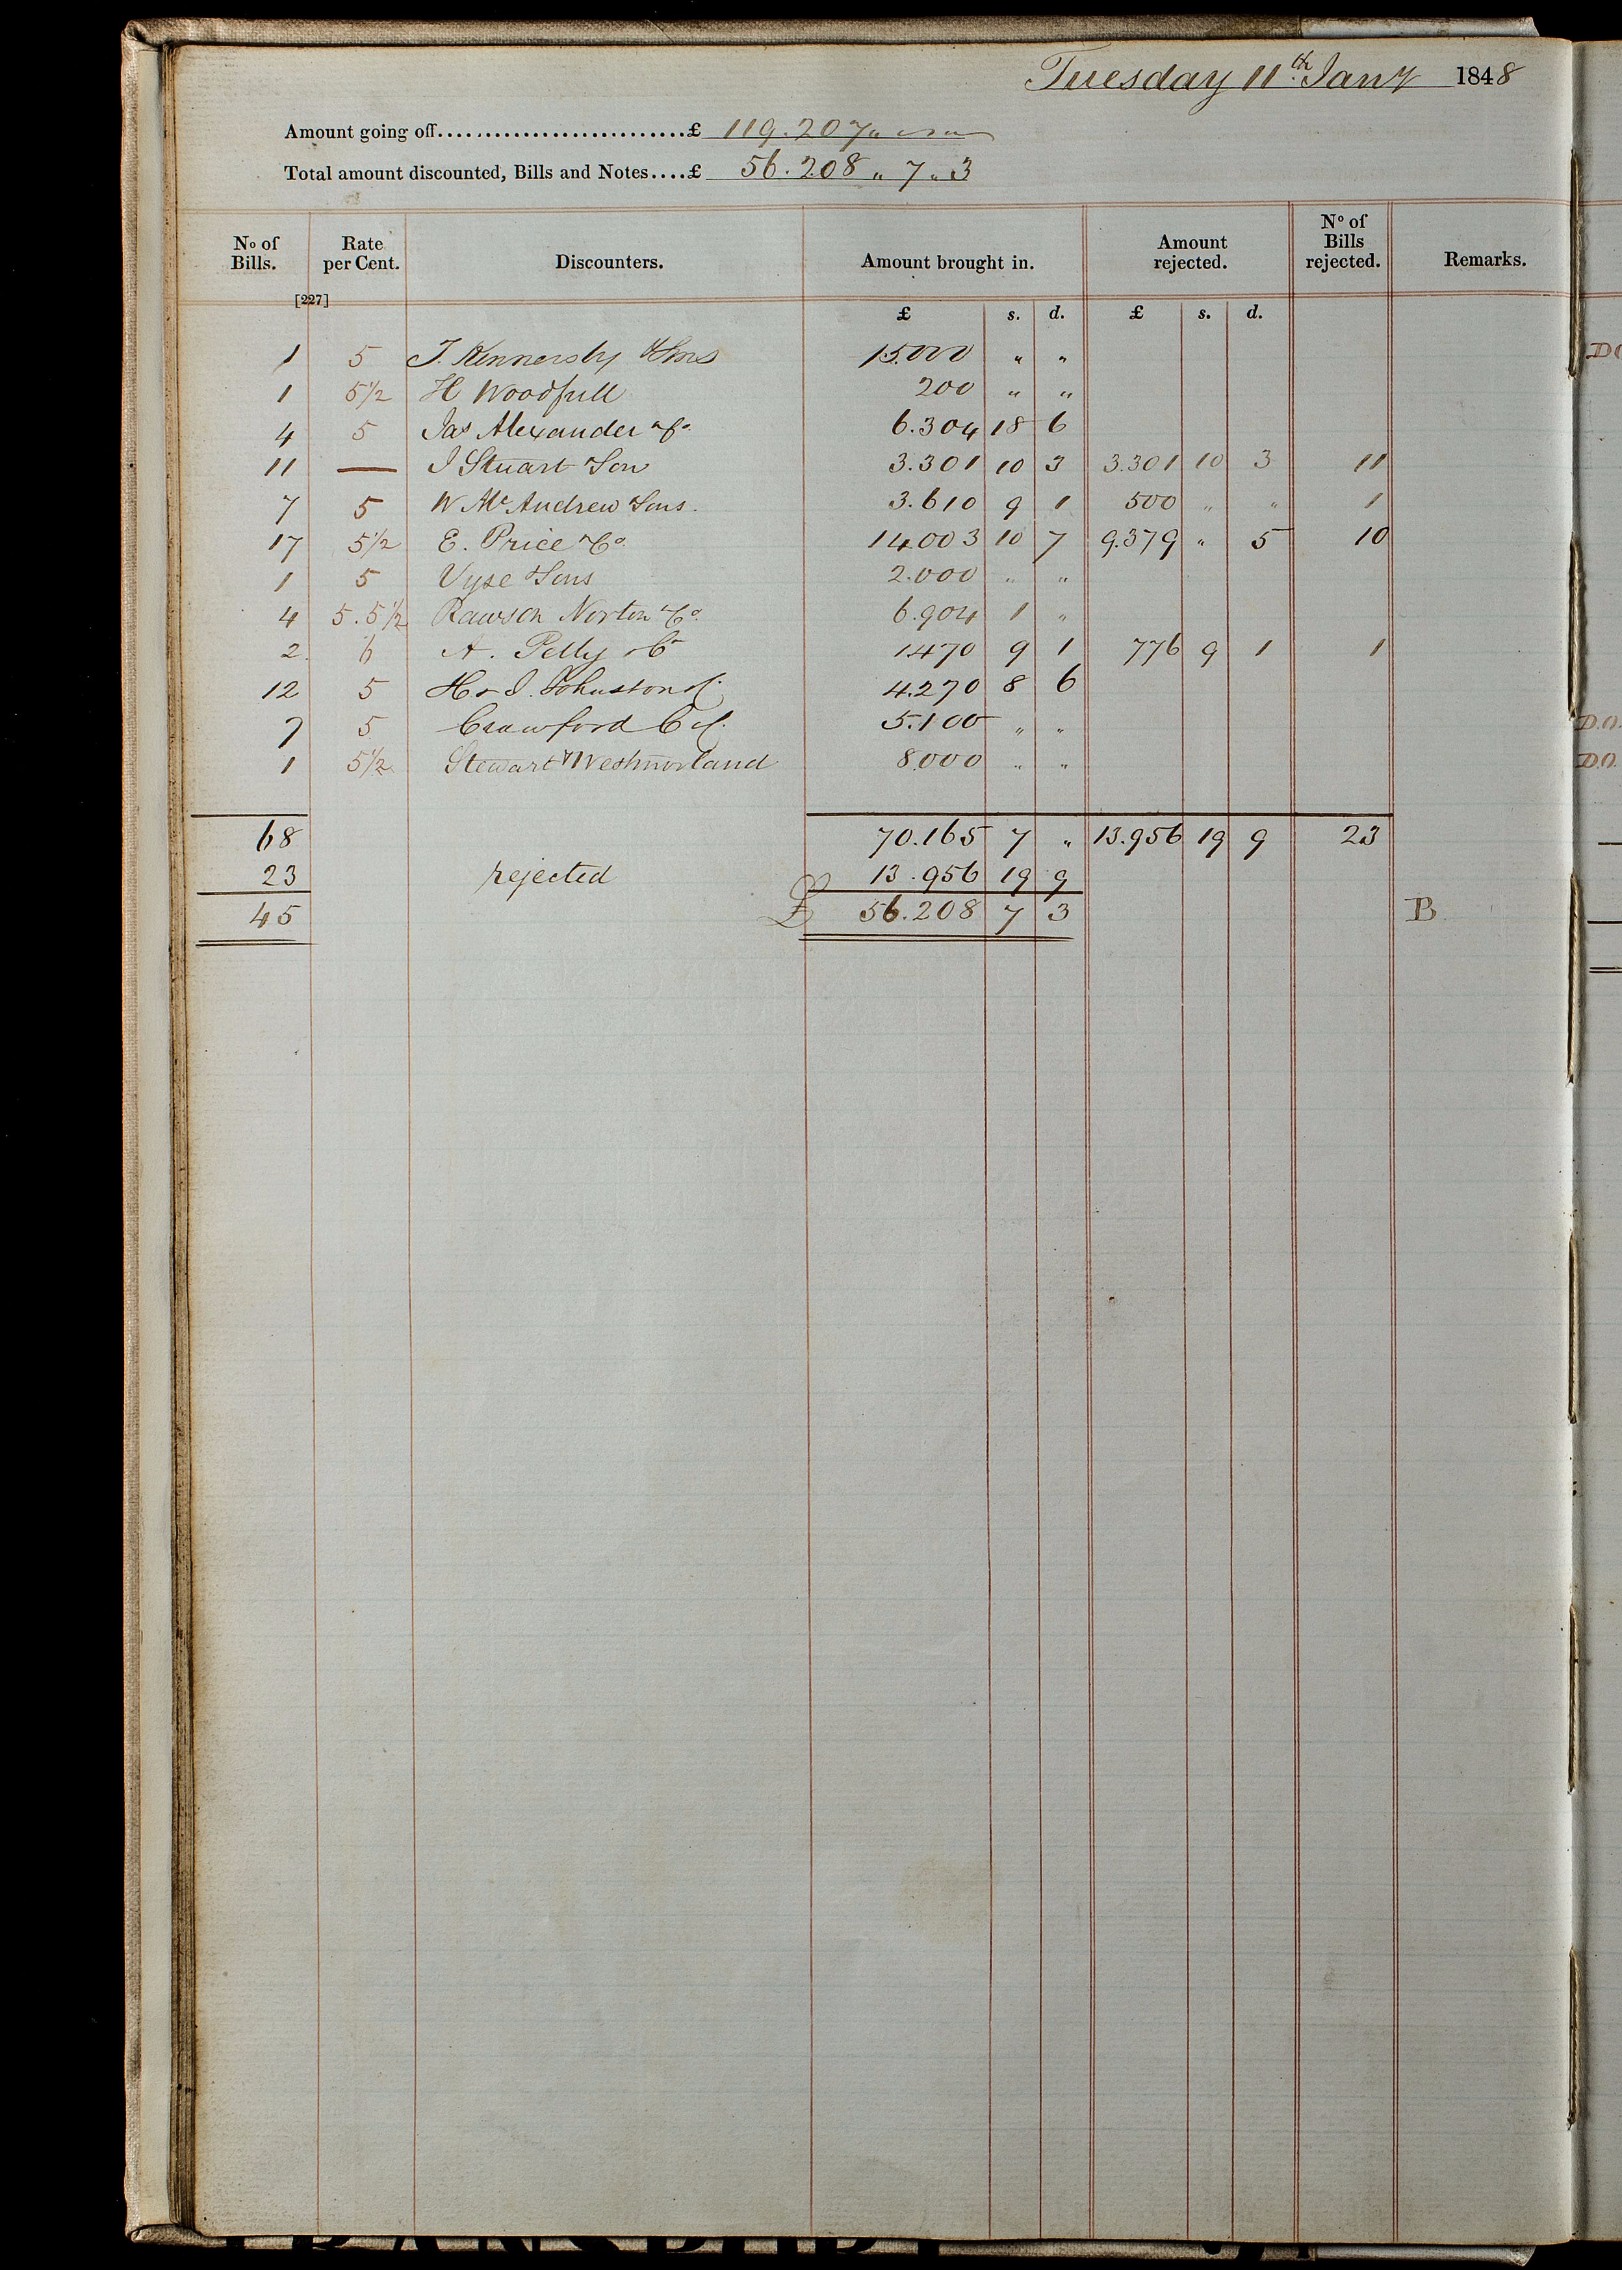 Tuesday 11th Jany 1848
Amount going off..........................£ 119.207 " " "
Total amount discounted, Bills and Notes....£ 56.208 " 7 " 3
No of Bills. Rate per Cent. Discounters. Amount brought in. Amount rejected. No of Bills rejected. Remarks.
[227]
£ s. d. £ s. d.
1 5 T. Kinnersly & Sons 15.000 " "
1 5½ H Woodfull 200 " "
4 5 Jas Alexander & Co. 6.304 18 6
11 — J Stuart & Son 3.301 10 3 3.301 10 3 11
7 5 W McAndrew & Sons. 3.610 9 1 500 " " 1
17 5½ E. Price & Co. 14.003 10 7 9.379 " 5 10
1 5 Vyse & Sons 2.000 " "
4 5.5½ Rawson Norton & Co. 6.904 1 "
2 6 A. Pelly & Co 1470 9 1 776 9 1 1
12 5 H & J. Johnston & Co. 4.270 8 6
7 5 Crawford C & Co. 5.100 " "
1 5½ Stewart & Westmorland 8.000 " "
68 70.165 7 " 13.956 19 9 23
23 rejected 13.956 19 9
45 £ 56.208 7 3 B
D.O.
D.O.